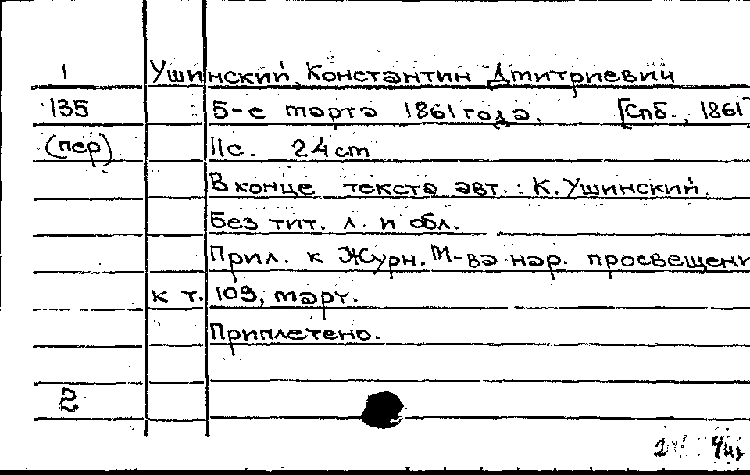 1 Ушинский, Константин Дмитриевич
135 5-е марта 1861 года. [Спб., 1861
(пер) 11с. 24cm
В конце текста авт.: К. Ушинский.
Без тит. л. и обл.
Прил. к Журн. М-ва нар. просвещени
к т. 109, март.
Приплетено.